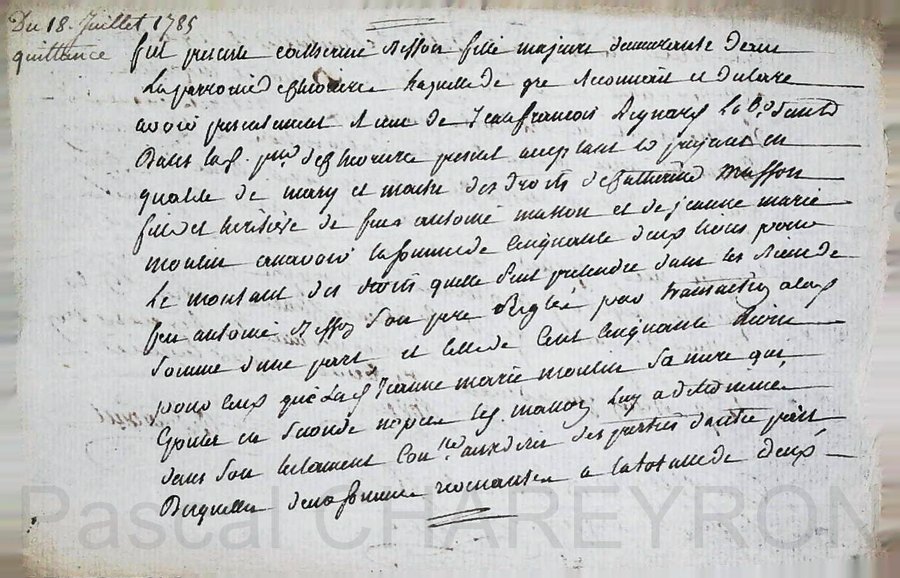 Du 18. Juillet 1785
quittance
fut presente catherine Risson fille majeure demeurante dans
La parroisse d laquelle de gre Reconnait et declare
avoir presentement Recu de Jean francois Reynard
Dans lad. present acceptant
qualité de mary et maitre des droits de Catherine masson
fille et heritiere de feu antoine masson et de jeanne marie
moulin a savoir la somme de Cinquante deux livres pour
Le montant des droits quelle peut pretendre dans les biens de
feu antoine Risson Son pere Reglés par transaction
Somme d'une part et celle de Cent Cinquante livres
pour ceux que lad. Jeanne marie moulin Sa mere qui
en Seconde nopces masson Luy a donné
dans Son testament des parties d'autre part
Desquelles deux sommes revenantes a la totalle de deux
Pascal CHAREYRON